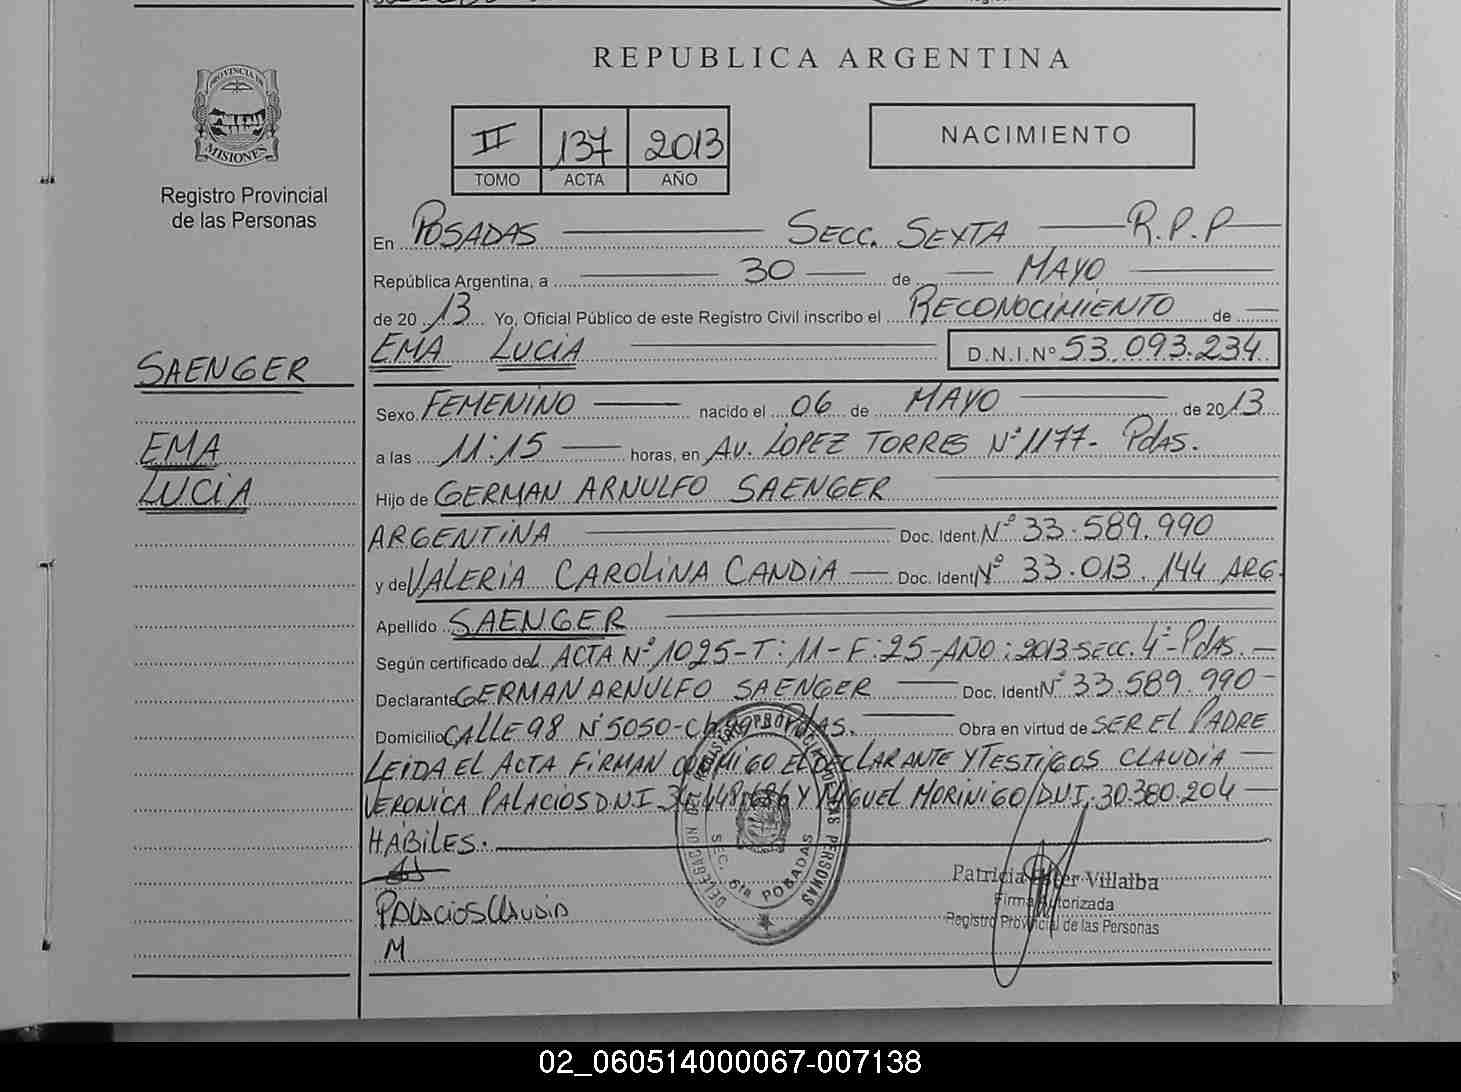 REPUBLICA ARGENTINA
PROVINCIA DE
MISIONES
Registro Provincial
de las Personas
II 137 2013
TOMO ACTA AÑO
NACIMIENTO
En POSADAS SECC. SEXTA R.P.P
República Argentina, a 30 de MAYO
de 20 13 Yo, Oficial Público de este Registro Civil inscribo el RECONOCIMIENTO de
EMA LUCIA D.N.I.Nº 53.093.234
SAENGER
EMA
LUCIA
Sexo FEMENINO nacido el 06 de MAYO de 20 13
a las 11:15 horas, en AV. LOPEZ TORRES Nº 1177- Pdas.
Hijo de GERMAN ARNULFO SAENGER
ARGENTINA Doc. Ident. Nº 33.589.990
y de VALERIA CAROLINA CANDIA Doc. Ident. Nº 33.013.144 ARG.
Apellido SAENGER
Según certificado del ACTA Nº 1025-T:11-F:25-AÑO:2013-SECC.4ª-Pdas.
Declarante GERMAN ARNULFO SAENGER Doc. Ident Nº 33.589.990
Domicilio CALLE 98 Nº 5050- Pdas. Obra en virtud de SER EL PADRE
LEIDA EL ACTA FIRMAN CONMIGO EL DECLARANTE Y TESTIGOS CLAUDIA
VERONICA PALACIOS D.N.I 34.448.686 Y MIGUEL MORINIGO D.N.I. 30.380.204
HABILES.
PALACIOS CLAUDIA
M
DELEGACION DEL REGISTRO PROVINCIAL DE LAS PERSONAS
SEC. 6ta POSADAS
Patricia Ester Villalba
Firma Autorizada
Registro Provincial de las Personas
02_060514000067-007138